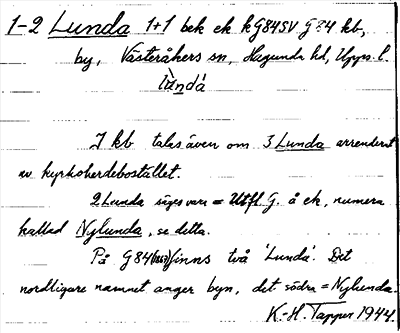 1-2 Lunda 1+1 bek ek k G84SV G 84 kb,
by, Västeråkers sn, Hagunda hd, Upps. l.
lùndá
I kb talas även om 3 Lunda arrenderat
av kyrkoherdebostället.
2 Lunda säges vara = Utfl. G. å ek, numera
kallad Nylunda, se detta.
På G84 finns två 'Lunda'. Det
nordligare namnet anger byn, det södra = Nylunda.
K.-H. Tapper 1944.